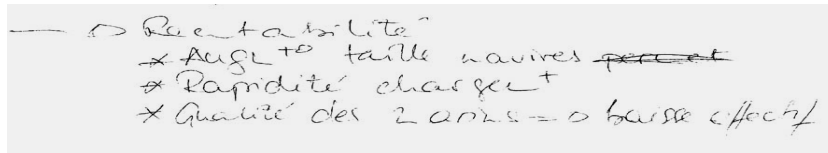 — → Rentabilité
* Augt° taille navires permet
* Rapidité charget
* Qualité des => baisse effectif